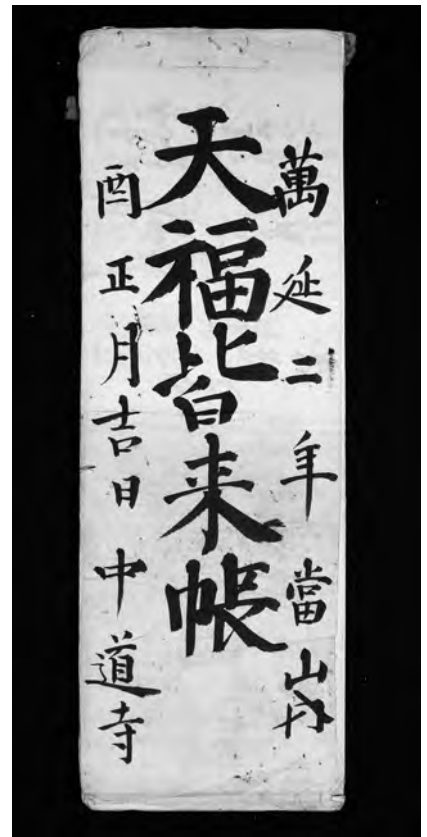 萬延二年當
天福皆来帳
酉正月吉日 中道寺